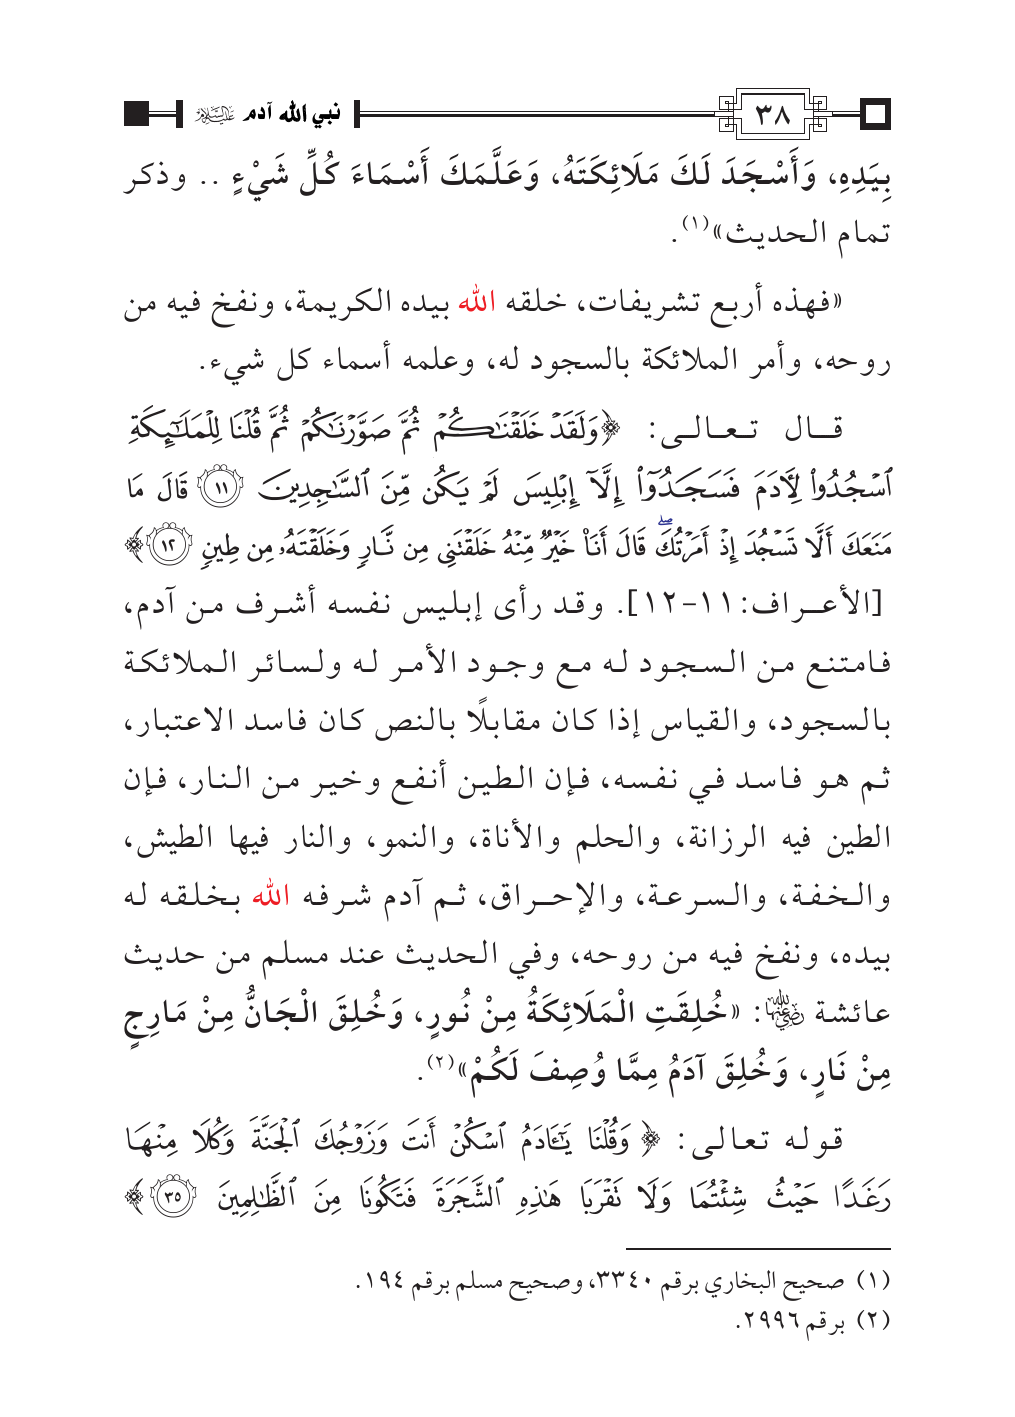 ٣٨
نبي الله آدم عليه السلام
بِيَدِهِ، وَأَسْجَدَ لَكَ مَلَائِكَتَهُ، وَعَلَّمَكَ أَسْمَاءَ كُلِّ شَيْءٍ .. وذكر
تمام الحديث»(١).
«فهذه أربع تشريفات، خلقه الله بيده الكريمة، ونفخ فيه من
روحه، وأمر الملائكة بالسجود له، وعلمه أسماء كل شيء.
قال تعالى: ﴿وَلَقَدْ خَلَقْنَٰكُمْ ثُمَّ صَوَّرْنَٰكُمْ ثُمَّ قُلْنَا لِلْمَلَٰٓئِكَةِ
ٱسْجُدُوا۟ لِـَٔادَمَ فَسَجَدُوٓا۟ إِلَّآ إِبْلِيسَ لَمْ يَكُن مِّنَ ٱلسَّٰجِدِينَ ١١ قَالَ مَا
مَنَعَكَ أَلَّا تَسْجُدَ إِذْ أَمَرْتُكَ ۖ قَالَ أَنَا۠ خَيْرٌ مِّنْهُ خَلَقْتَنِى مِن نَّارٍ وَخَلَقْتَهُۥ مِن طِينٍ ١٢﴾
[الأعراف:١١-١٢]. وقد رأى إبليس نفسه أشرف من آدم،
فامتنع من السجود له مع وجود الأمر له ولسائر الملائكة
بالسجود، والقياس إذا كان مقابلًا بالنص كان فاسد الاعتبار،
ثم هو فاسد في نفسه، فإن الطين أنفع وخير من النار، فإن
الطين فيه الرزانة، والحلم والأناة، والنمو، والنار فيها الطيش،
والخفة، والسرعة، والإحراق، ثم آدم شرفه الله بخلقه له
بيده، ونفخ فيه من روحه، وفي الحديث عند مسلم من حديث
عائشة رضي الله عنها: «خُلِقَتِ الْمَلَائِكَةُ مِنْ نُورٍ، وَخُلِقَ الْجَانُّ مِنْ مَارِجٍ
مِنْ نَارٍ، وَخُلِقَ آدَمُ مِمَّا وُصِفَ لَكُمْ»(٢).
قوله تعالى: ﴿وَقُلْنَا يَٰٓـَٔادَمُ ٱسْكُنْ أَنتَ وَزَوْجُكَ ٱلْجَنَّةَ وَكُلَا مِنْهَا
رَغَدًا حَيْثُ شِئْتُمَا وَلَا تَقْرَبَا هَٰذِهِ ٱلشَّجَرَةَ فَتَكُونَا مِنَ ٱلظَّٰلِمِينَ ٣٥﴾
(١) صحيح البخاري برقم ٣٣٤٠، وصحيح مسلم برقم ١٩٤.
(٢) برقم ٢٩٩٦.